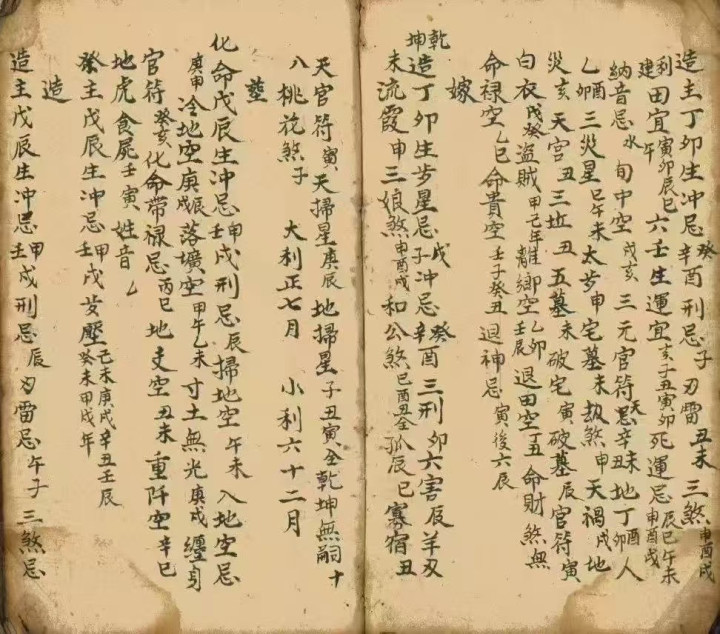 造主丁卯生冲忌癸酉辛酉刑忌子刃雷丑未三煞申酉戌
利建田宜寅卯辰巳午六壬生運宜亥子丑寅卯死運忌辰巳午未申酉戌
納音忌水旬中空戌亥三元官符天忌辛未丑地丁酉卯人
乙酉卯三災星巳午未太岁申宅墓未劫煞申天禍戌地
災亥天宫丑三坵丑五墓未破宅寅破墓辰官符寅
白衣戊癸盗賊甲己年離鄉空乙卯壬辰退田空丁丑命財煞無
命禄空乙巳命貴空壬子癸丑退神忌寅後六辰
嫁
乾坤造丁卯生岁星忌子戊冲忌癸酉辛三刑卯六害辰羊刃
未流霞申三娘煞申酉戌和公煞巳酉丑全孤辰巳寡宿丑
天官符寅天掃星庚辰地掃星子丑寅全乾坤無嗣十
八桃花煞子大利正七月小利六十二月
塟
化命戊辰生冲忌甲戌壬刑忌辰掃地空午未入地空忌
庚申冷地空庚辰戌落壙空甲午乙未寸土無光庚戌纏身
官符癸亥化命带禄忌丙巳地支空丑未重阡空辛巳
地虎食屍壬寅姓音乙
祭主戊辰生冲忌甲戌壬岁壓己未庚戌辛丑壬辰癸未甲戌年
造
造主戊辰生冲忌甲戌壬刑忌辰刃雷忌午子三煞忌